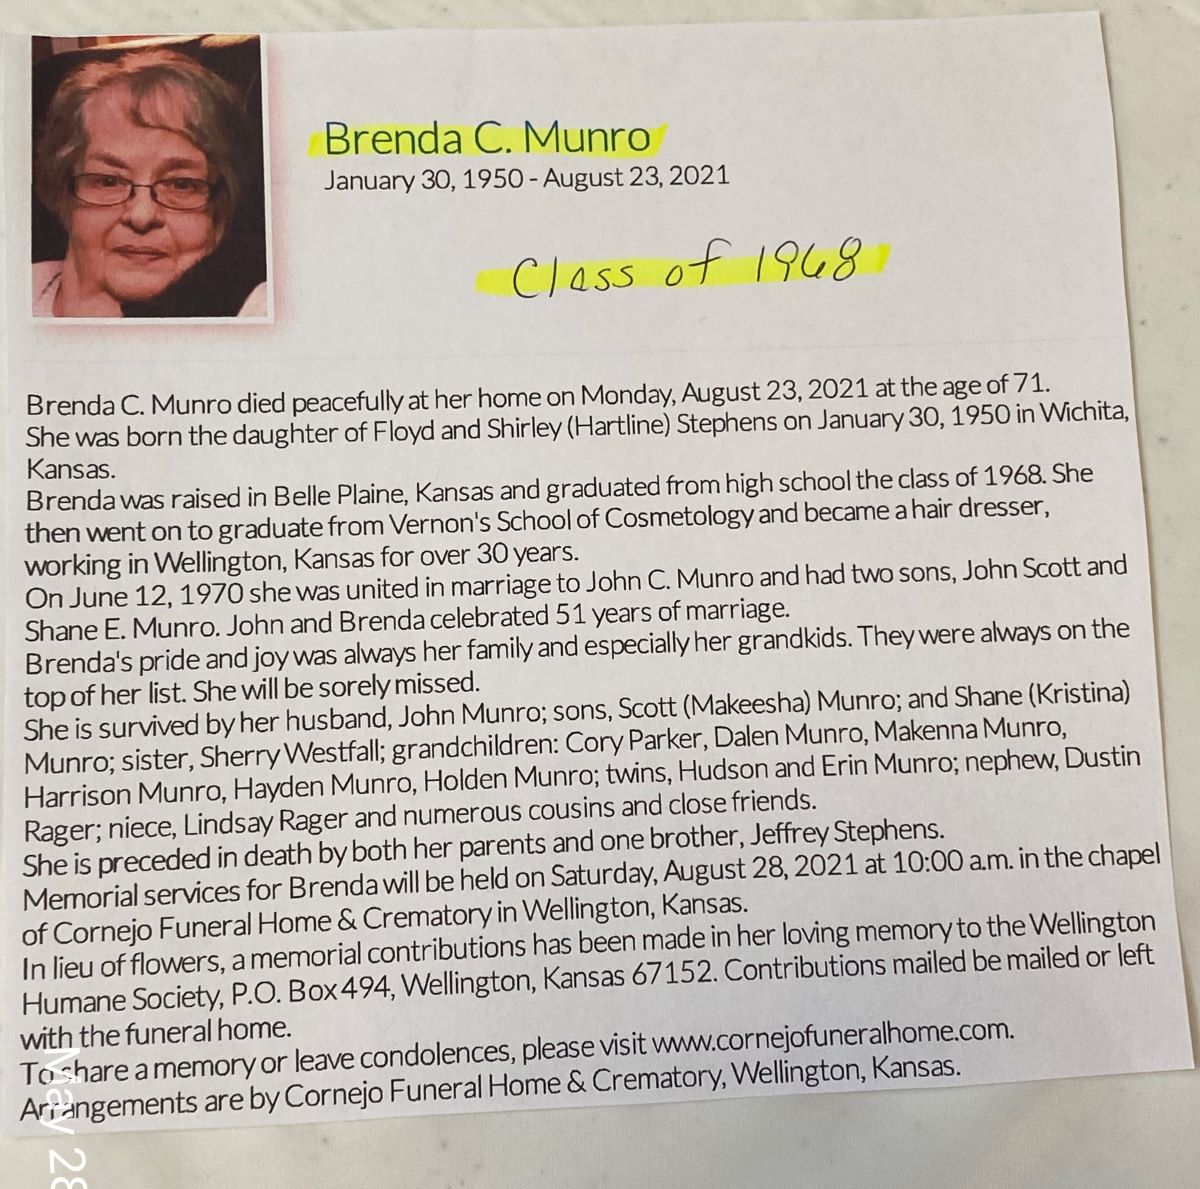 Brenda C. Munro
January 30, 1950 - August 23, 2021
Class of 1968
Brenda C. Munro died peacefully at her home on Monday, August 23, 2021 at the age of 71.
She was born the daughter of Floyd and Shirley (Hartline) Stephens on January 30, 1950 in Wichita,
Kansas.
Brenda was raised in Belle Plaine, Kansas and graduated from high school the class of 1968. She
then went on to graduate from Vernon's School of Cosmetology and became a hair dresser,
working in Wellington, Kansas for over 30 years.
On June 12, 1970 she was united in marriage to John C. Munro and had two sons, John Scott and
Shane E. Munro. John and Brenda celebrated 51 years of marriage.
Brenda's pride and joy was always her family and especially her grandkids. They were always on the
top of her list. She will be sorely missed.
She is survived by her husband, John Munro; sons, Scott (Makeesha) Munro; and Shane (Kristina)
Munro; sister, Sherry Westfall; grandchildren: Cory Parker, Dalen Munro, Makenna Munro,
Harrison Munro, Hayden Munro, Holden Munro; twins, Hudson and Erin Munro; nephew, Dustin
Rager; niece, Lindsay Rager and numerous cousins and close friends.
She is preceded in death by both her parents and one brother, Jeffrey Stephens.
Memorial services for Brenda will be held on Saturday, August 28, 2021 at 10:00 a.m. in the chapel
of Cornejo Funeral Home & Crematory in Wellington, Kansas.
In lieu of flowers, a memorial contributions has been made in her loving memory to the Wellington
Humane Society, P.O. Box 494, Wellington, Kansas 67152. Contributions mailed be mailed or left
with the funeral home.
To share a memory or leave condolences, please visit www.cornejofuneralhome.com.
Arrangements are by Cornejo Funeral Home & Crematory, Wellington, Kansas.
May 28